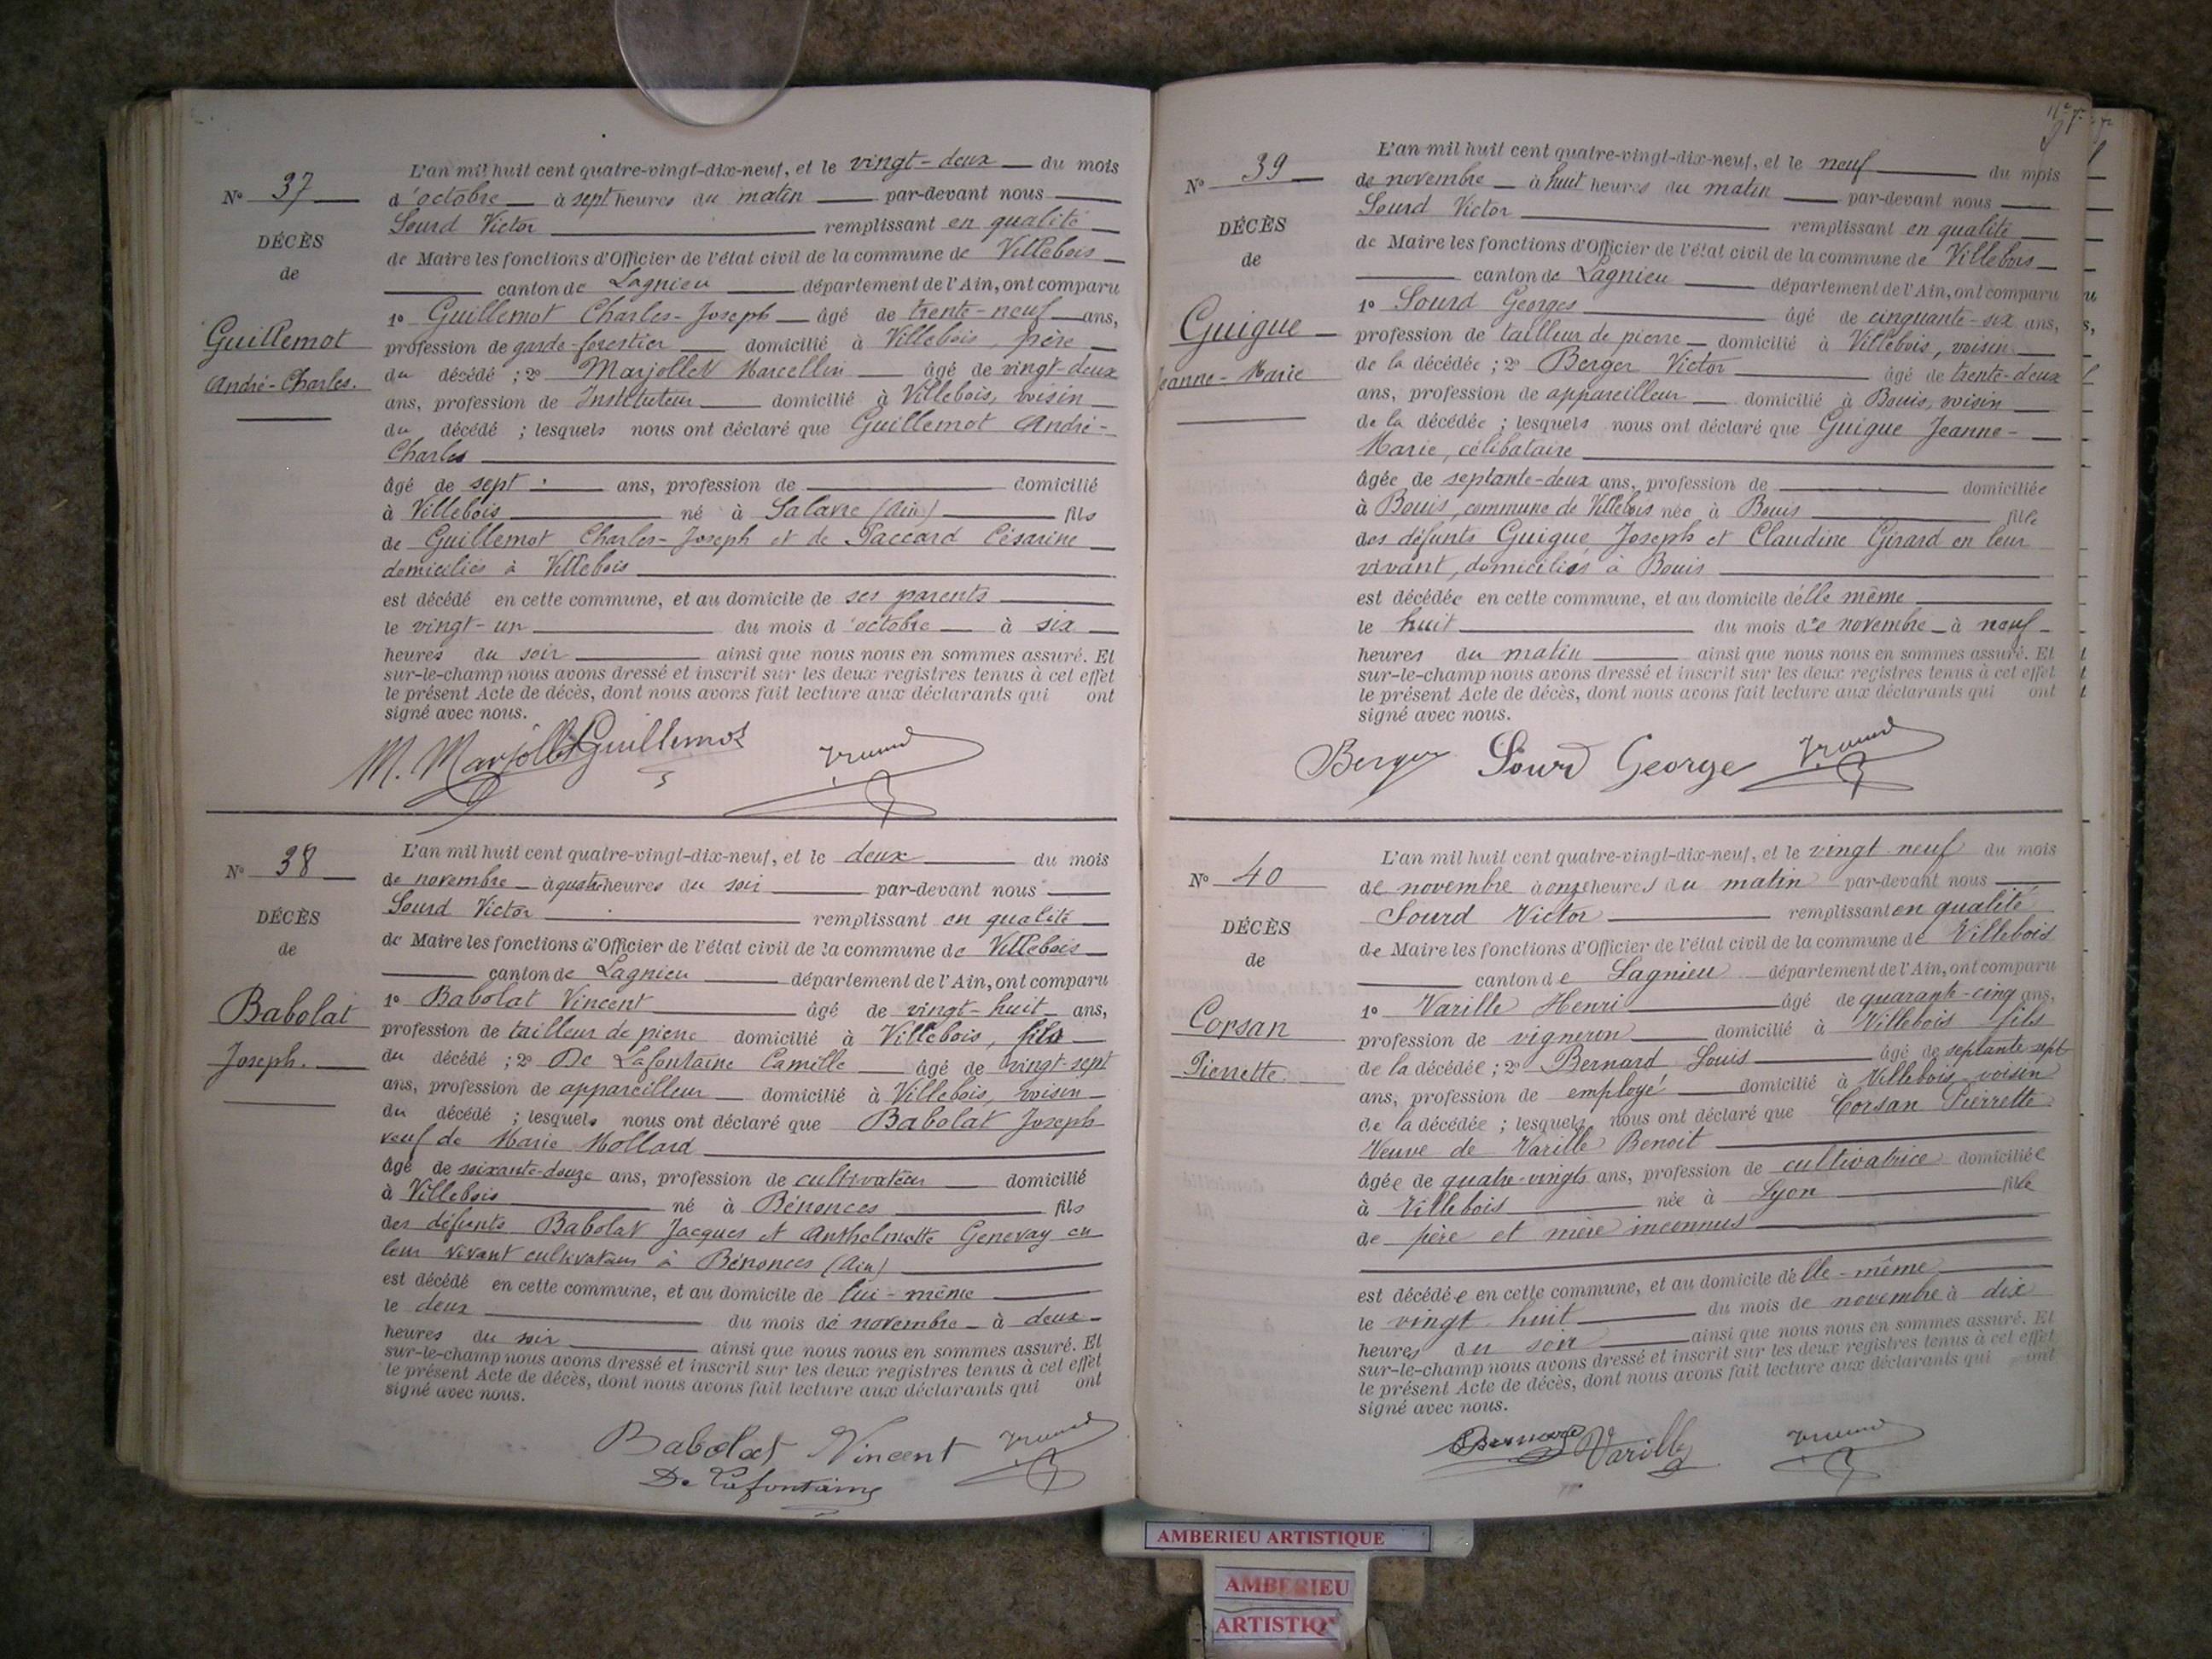 N° 37
DÉCÈS
de
Guillemot
André-Charles.
L'an mil huit cent quatre-vingt-dix-neuf, et le vingt-deux du mois
d'octobre à sept heures du matin par-devant nous
Sourd Victor remplissant en qualité
de Maire les fonctions d'Officier de l'état civil de la commune de Villebois
canton de Lagnieu département de l'Ain, ont comparu
1° Guillemot Charles-Joseph âgé de trente-neuf ans,
profession de garde-forestier domicilié à Villebois, père
du décédé ; 2° Marjollet Marcellin âgé de vingt-deux
ans, profession de Instituteur domicilié à Villebois, voisin
du décédé ; lesquels nous ont déclaré que Guillemot André-
Charles
âgé de sept ans, profession de domicilié
à Villebois né à Salavre (Ain) fils
de Guillemot Charles-Joseph et de Paccard Césarine
domiciliés à Villebois
est décédé en cette commune, et au domicile de ses parents
le vingt-un du mois d'octobre à six
heures du soir ainsi que nous nous en sommes assuré. Et
sur-le-champ nous avons dressé et inscrit sur les deux registres tenus à cet effet
le présent Acte de décès, dont nous avons fait lecture aux déclarants qui ont
signé avec nous.
M. Marjollet Guillemot
N° 38
DÉCÈS
de
Babolat
Joseph.
L'an mil huit cent quatre-vingt-dix-neuf, et le deux du mois
de novembre à quatre heures du soir par-devant nous
Sourd Victor remplissant en qualité
de Maire les fonctions d'Officier de l'état civil de la commune de Villebois
canton de Lagnieu département de l'Ain, ont comparu
1° Babolat Vincent âgé de vingt-huit ans,
profession de tailleur de pierre domicilié à Villebois, fils
du décédé ; 2° De Lafontaine Camille âgé de vingt-sept
ans, profession de appareilleur domicilié à Villebois, voisin
du décédé ; lesquels nous ont déclaré que Babolat Joseph
veuf de Marie Mollard
âgé de soixante-douze ans, profession de cultivateur domicilié
à Villebois né à Bénonces fils
des défunts Babolat Jacques et Anthelmette Genevay en
leur vivant cultivateurs à Bénonces (Ain)
est décédé en cette commune, et au domicile de lui-même
le deux du mois de novembre à deux
heures du soir ainsi que nous nous en sommes assuré. Et
sur-le-champ nous avons dressé et inscrit sur les deux registres tenus à cet effet
le présent Acte de décès, dont nous avons fait lecture aux déclarants qui ont
signé avec nous.
Babolat Vincent
De Lafontaine
N° 39
DÉCÈS
de
Guigue
Jeanne-Marie
L'an mil huit cent quatre-vingt-dix-neuf, et le neuf du mois
de novembre à huit heures du matin par-devant nous
Sourd Victor remplissant en qualité
de Maire les fonctions d'Officier de l'état civil de la commune de Villebois
canton de Lagnieu département de l'Ain, ont comparu
1° Sourd Georges âgé de cinquante-six ans,
profession de tailleur de pierre domicilié à Villebois, voisin
de la décédée ; 2° Berger Victor âgé de trente-deux
ans, profession de appareilleur domicilié à Bouis, voisin
de la décédée ; lesquels nous ont déclaré que Guigue Jeanne-
Marie, célibataire
âgée de septante-deux ans, profession de domiciliée
à Bouis, commune de Villebois née à Bouis fille
des défunts Guigue Joseph et Claudine Girard en leur
vivant, domiciliés à Bouis
est décédée en cette commune, et au domicile d'elle même
le huit du mois de novembre à neuf
heures du matin ainsi que nous nous en sommes assuré. Et
sur-le-champ nous avons dressé et inscrit sur les deux registres tenus à cet effet
le présent Acte de décès, dont nous avons fait lecture aux déclarants qui ont
signé avec nous.
Berger Sourd George
N° 40
DÉCÈS
de
Corsan
Pierrette.
L'an mil huit cent quatre-vingt-dix-neuf, et le vingt-neuf du mois
de novembre à onze heures du matin par-devant nous
Sourd Victor remplissant en qualité
de Maire les fonctions d'Officier de l'état civil de la commune de Villebois
canton de Lagnieu département de l'Ain, ont comparu
1° Varille Henri âgé de quarante-cinq ans,
profession de vigneron domicilié à Villebois fils
de la décédée ; 2° Bernard Louis âgé de septante sept
ans, profession de employé domicilié à Villebois voisin
de la décédée ; lesquels nous ont déclaré que Corsan Pierrette
Veuve de Varille Benoit
âgée de quatre-vingts ans, profession de cultivatrice domiciliée
à Villebois née à Lyon fille
de père et mère inconnus
est décédée en cette commune, et au domicile d'elle-même
le vingt-huit du mois de novembre à dix
heures du soir ainsi que nous nous en sommes assuré. Et
sur-le-champ nous avons dressé et inscrit sur les deux registres tenus à cet effet
le présent Acte de décès, dont nous avons fait lecture aux déclarants qui ont
signé avec nous.
Bernard Varille
AMBERIEU ARTISTIQUE
AMBERIEU
ARTISTIQ